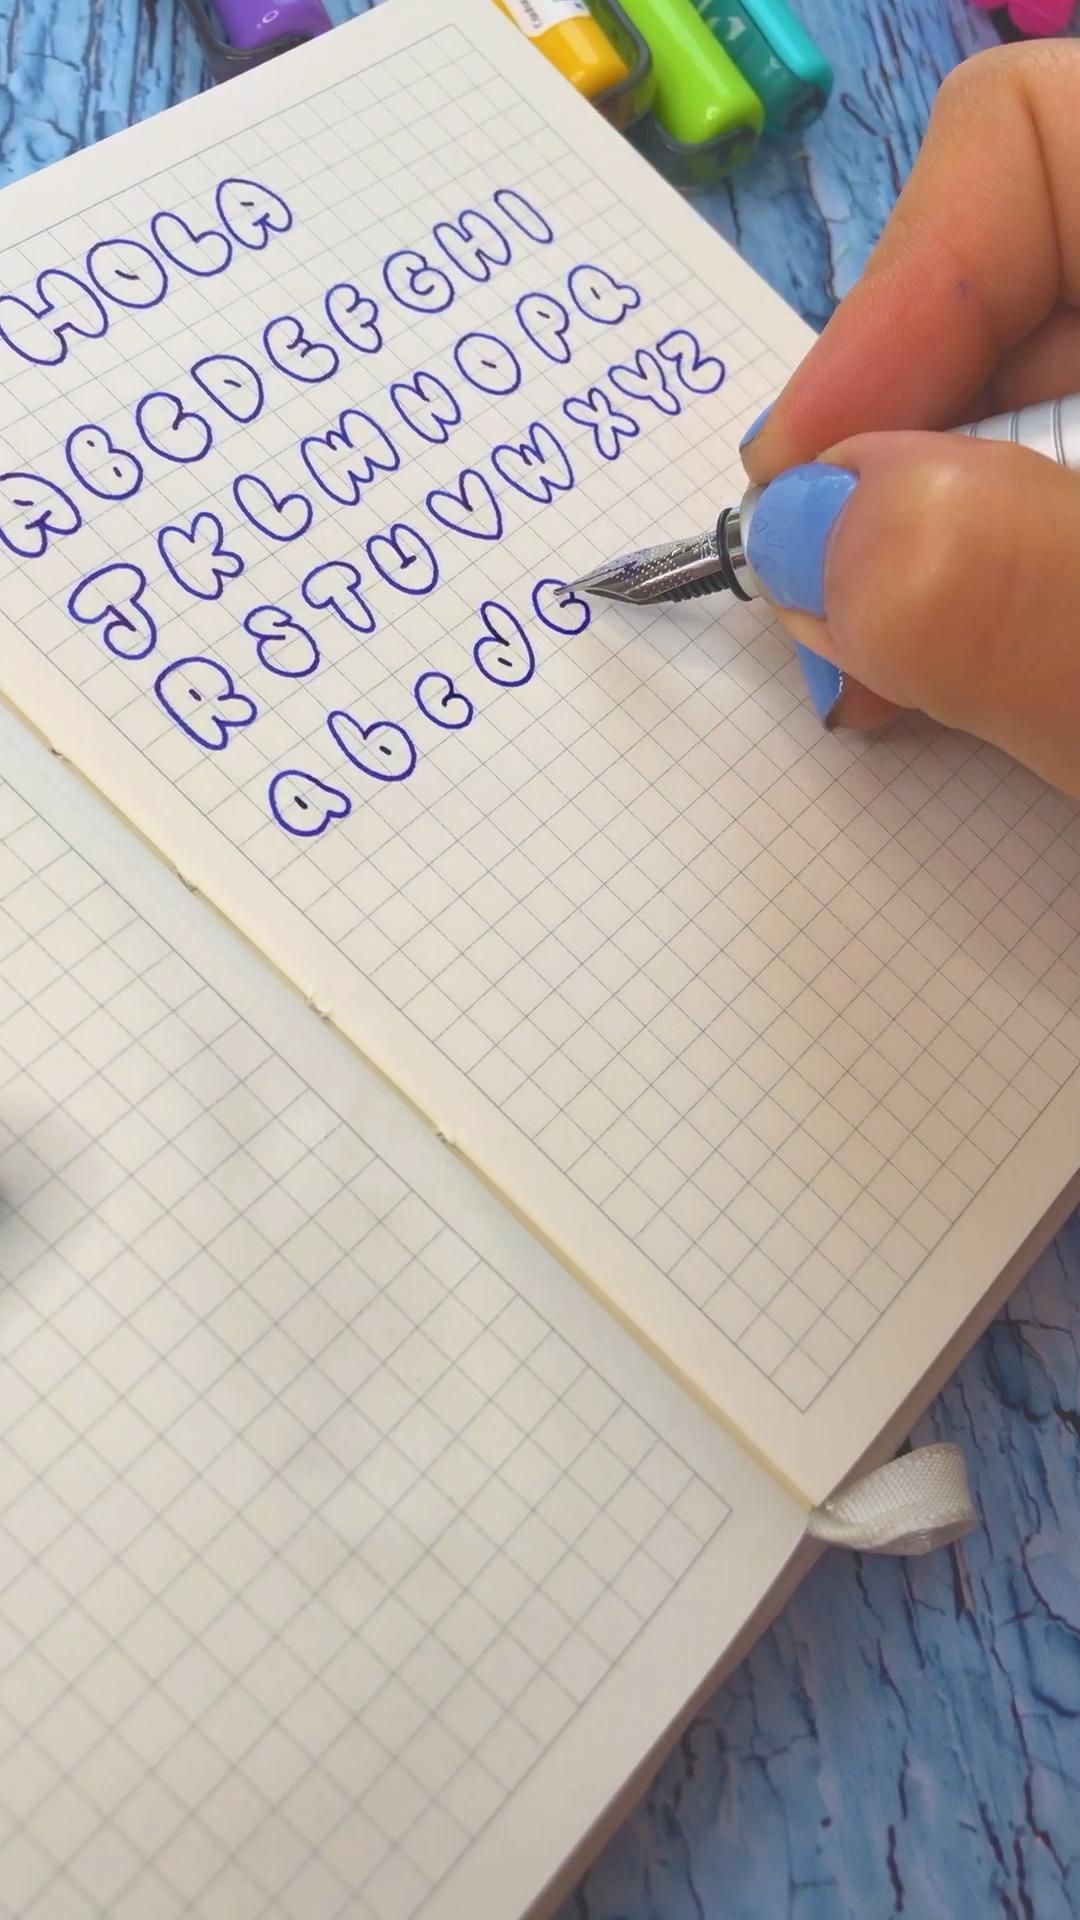 HOLA
A B C D E F G H I
J K L M N O P Q
R S T U V W X Y Z
a b c d e